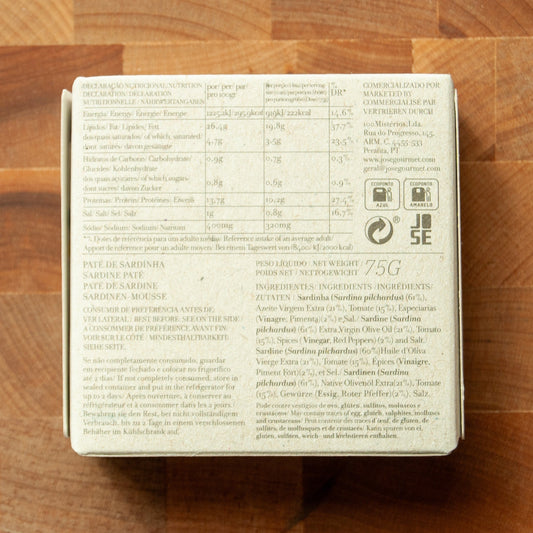 DECLARAÇÃO NUTRICIONAL/NUTRITION
DECLARATION/DÉCLARATION
NUTRITIONNELLE/NÄHRWERTANGABEN
por/ per/ par/
pro 100gr
%
DR*
Energia/ Energy/ Energie/ Energie
1225,2kJ/ 295,9kcal
919kJ/222kcal
14,6%
Lípidos/ Fat/ Lipides/ Fett
26,4g
19,8g
37,7%
dos quais saturados/ of which, saturated/
dont saturés/ davon gesättigte
4,7g
3,5g
23,5%
Hidratos de Carbono/ Carbohydrate/
Glucides/ Kohlenhydrate
0,9g
0,7g
0,3%
dos quais açúcares/ of which,sugars
dont sucres/ davon Zucker
0,8g
0,6g
0,9%
Proteínas/ Protein/ Protéines/ Eiweiß
13,7g
10,2g
27,4%
Sal/ Salt/ Sel/ Salz
1g
0,8g
16,7%
Sódio/ Sodium/ Sodium/ Natrium
400mg
320mg
*). Doses de referência para um adulto médio/ Reference intake of an average adult/
Apport de référence pour un adulte moyen/ Bei einem Tageswert von (8400/ kJ/2000 kcal)
COMERCIALIZADO POR
MARKETED BY
COMMERCIALISÉ PAR
VERTRIEBEN DURCH
100 Mistérios, Lda.
Rua do Progresso, 245,
ARM. C, 4455-533
Perafita, PT
www.josegourmet.com
geral@josegourmet.com
ECOPONTO
AZUL
ECOPONTO
AMARELO
®
JO
SE
PATÉ DE SARDINHA
SARDINE PATÉ
PATÉ DE SARDINE
SARDINEN-MOUSSE
CONSUMIR DE PREFERÊNCIA ANTES DE:
VER LATERAL / BEST BEFORE: SEE ON THE SIDE /
A CONSOMMER DE PRÉFÉRENCE AVANT FIN:
VOIR SUR LE CÔTÉ / MINDESTHALTBARKEIT:
SIEHE SEITE.
Se não completamente consumido, guardar
em recipiente fechado e colocar no frigorífico
até 2 dias/ If not completely consumed, store in
sealed container and put in the refrigerator for
up to 2 days/ Après ouverture, à conserver au
réfrigérateur et à consommer dans les 2 jours /
Bewahren sie den Rest, bei nicht vollständigem
Verbrauch, bis zu 2 Tage in einem verschlossenen
Behälter im Kühlschrank auf.
PESO LÍQUIDO / NET WEIGHT /
POIDS NET / NETTOGEWICHT
75G
INGREDIENTES/ INGREDIENTS/ INGRÉDIENTS/
ZUTATEN / Sardinha (Sardina pilchardus) (61%),
Azeite Virgem Extra (21%), Tomate (15%), Especiarias
(Vinagre, Pimenta)(2%) e Sal./ Sardine (Sardina
pilchardus) (61%) Extra Virgin Olive Oil (21%), Tomato
(15%), Spices (Vinegar, Red Peppers) (2%) and Salt.
Sardine (Sardina pilchardus) (60%)Huile d'Oliva
Vierge Extra (21%), Tomate (15%), Épices (Vinaigre,
Piment Fort)(2%), et Sel./ Sardinen (Sardina
pilchardus) (61%), Native Olivenöl Extra(21%), Tomate
(15%), Gewürze (Essig, Roter Pfeffer)(2%), Salz.
Pode conter vestígios de ovo, glúten, sulfitos, moluscos e
crustáceos/ May contain traces of egg, gluten, sulphites, molluscs
and crustaceans/ Peut contenir des traces d'œuf, de gluten, de
sulfites, de mollusques et de crustacés/ Kann spuren von ei,
gluten, sulfiten, weich- und krebstieren enthalten.